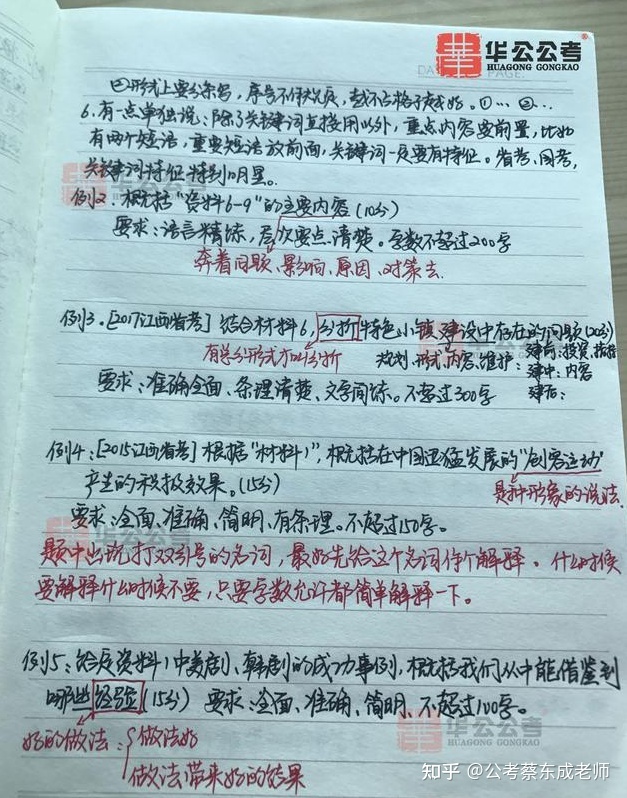 华公公考
HUAGONG GONGKAO
DA PAGE.
②形式上要分条写，序号不作大尺度，
6.有一点单独说：除了关键词直接用以外，重点内容要前置，比如
有两个短语，重要短语放前面，关键词一定要有特征。省考，国考，
关键词特征特别明显。
例2、概括“资料6-9”的主要内容（10分）
要求：语言精练，层次要点清楚。字数不超过200字
奔着问题、影响、原因、对策去
例3.[2017江西省考]结合材料6，分析特色小镇建设中存在的问题(20分)
有要分形式才叫分析
规划、形式、内容、维护：
建前：投资，
建中：内容
建后：
要求：准确全面、条理清楚、文字简练。不超过300字
例4：[2015江西省考]根据“材料1”，概括在中国迅猛发展的“创客运动”
产生的积极效果。(15分)
是种形象的说法.
要求：全面、准确、简明、有条理。不超过150字。
题中出现打双引号的名词，最好先给这个名词作个解释。什么时候
要解释什么时候不要，只要字数允许都简单解释一下。
例5：给定资料1中美剧、韩剧的成功事例，概括我们从中能借鉴到
哪些经验(15分) 要求：全面、准确、简明、不超过100字。
好的做法：做法好
做法带来好的结果
华公公考
HUAGONG GONGKAO
知乎 @公考蔡东成老师